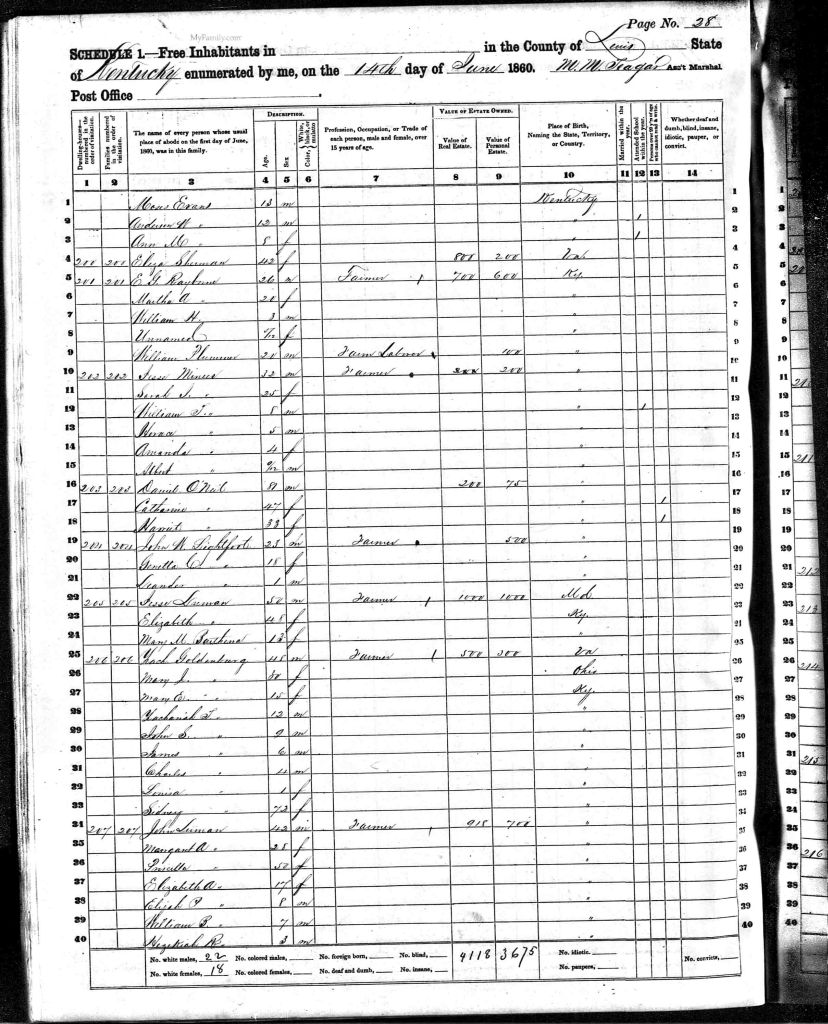 MyFamily.com
Page No. 28
SCHEDULE 1.—Free Inhabitants in in the County of Lewis State
of Kentucky enumerated by me, on the 14th day of June 1860. M. W. Teagar Ass't Marshal.
Post Office
Dwelling-houses—numbered in the order of visitation.
Families numbered in the order of visitation.
The name of every person whose usual place of abode on the first day of June, 1860, was in this family.
DESCRIPTION.
Age.
Sex
Color, White, black, or mulatto
Profession, Occupation, or Trade of each person, male and female, over 15 years of age.
VALUE OF ESTATE OWNED.
Value of Real Estate.
Value of Personal Estate.
Place of Birth, Naming the State, Territory, or Country.
Married within the year.
Attended School within the year.
Whether deaf and dumb, blind, insane, idiotic, pauper, or convict.
1 2 3 4 5 6 7 8 9 10 11 12 13 14
1 Evans 13 m Kentucky 1
2 " 12 m 1 2
3 Ann M. " 8 f " 1 3
4 200 200 Eliza Sherman 42 f 800 200 Va. 4
5 201 201 E. G. Rayburn 26 m Farmer 1 700 600 Ky. 5
6 Martha A " 20 f " 6
7 William H. 3 m " 7
8 Unnamed f " 8
9 William Plummer 20 m Farm Laborer 100 " 9
10 202 202 Jesse 32 m Farmer 200 " 10
11 Sarah " 25 f 11
12 William T. " 8 m " 1 12
13 Horace " 5 m " 13
14 Amanda " 4 f " 14
15 Albert " 9/12 m " 15
16 203 203 Daniel O'Neil 81 m 200 75 " 16
17 Catharine " 47 f " 1 17
18 Harriet " 33 f " 1 18
19 204 204 John W. Lightfoot 23 m Farmer 500 " 19
20 C. " 18 f " 20
21 Leander " 1 m " 21
22 205 205 Jesse 50 m Farmer 1 1000 1000 Md 22
23 Elizabeth " 48 f Ky. 23
24 Mary M. 13 f " 24
25 206 206 Zach Goldenburg 45 m Farmer 1 500 300 Va 25
26 Mary J. " 30 f Ohio 26
27 Mary E. " 15 f Ky. 27
28 Zachariah T. " 12 m " 28
29 John S. " 9 m " 29
30 James " 6 m " 30
31 Charles " 4 m 31
32 Louisa " 1 f 32
33 Sidney " 72 f " 33
34 207 207 John 42 m Farmer 1 918 700 " 34
35 Margaret A " 28 f " 35
36 Priscilla " 50 f " 36
37 Elizabeth A " 17 f " 37
38 Elijah P. " 8 m " 38
39 William B. " 7 m " 39
40 Hezekiah R. " 3 m " 40
No. white males, 22 No. colored males, No. foreign born, No. blind, 4118 3675 No. idiotic. No. convicts,
No. white females, 18 No. colored females, No. deaf and dumb, No. insane, No. paupers,